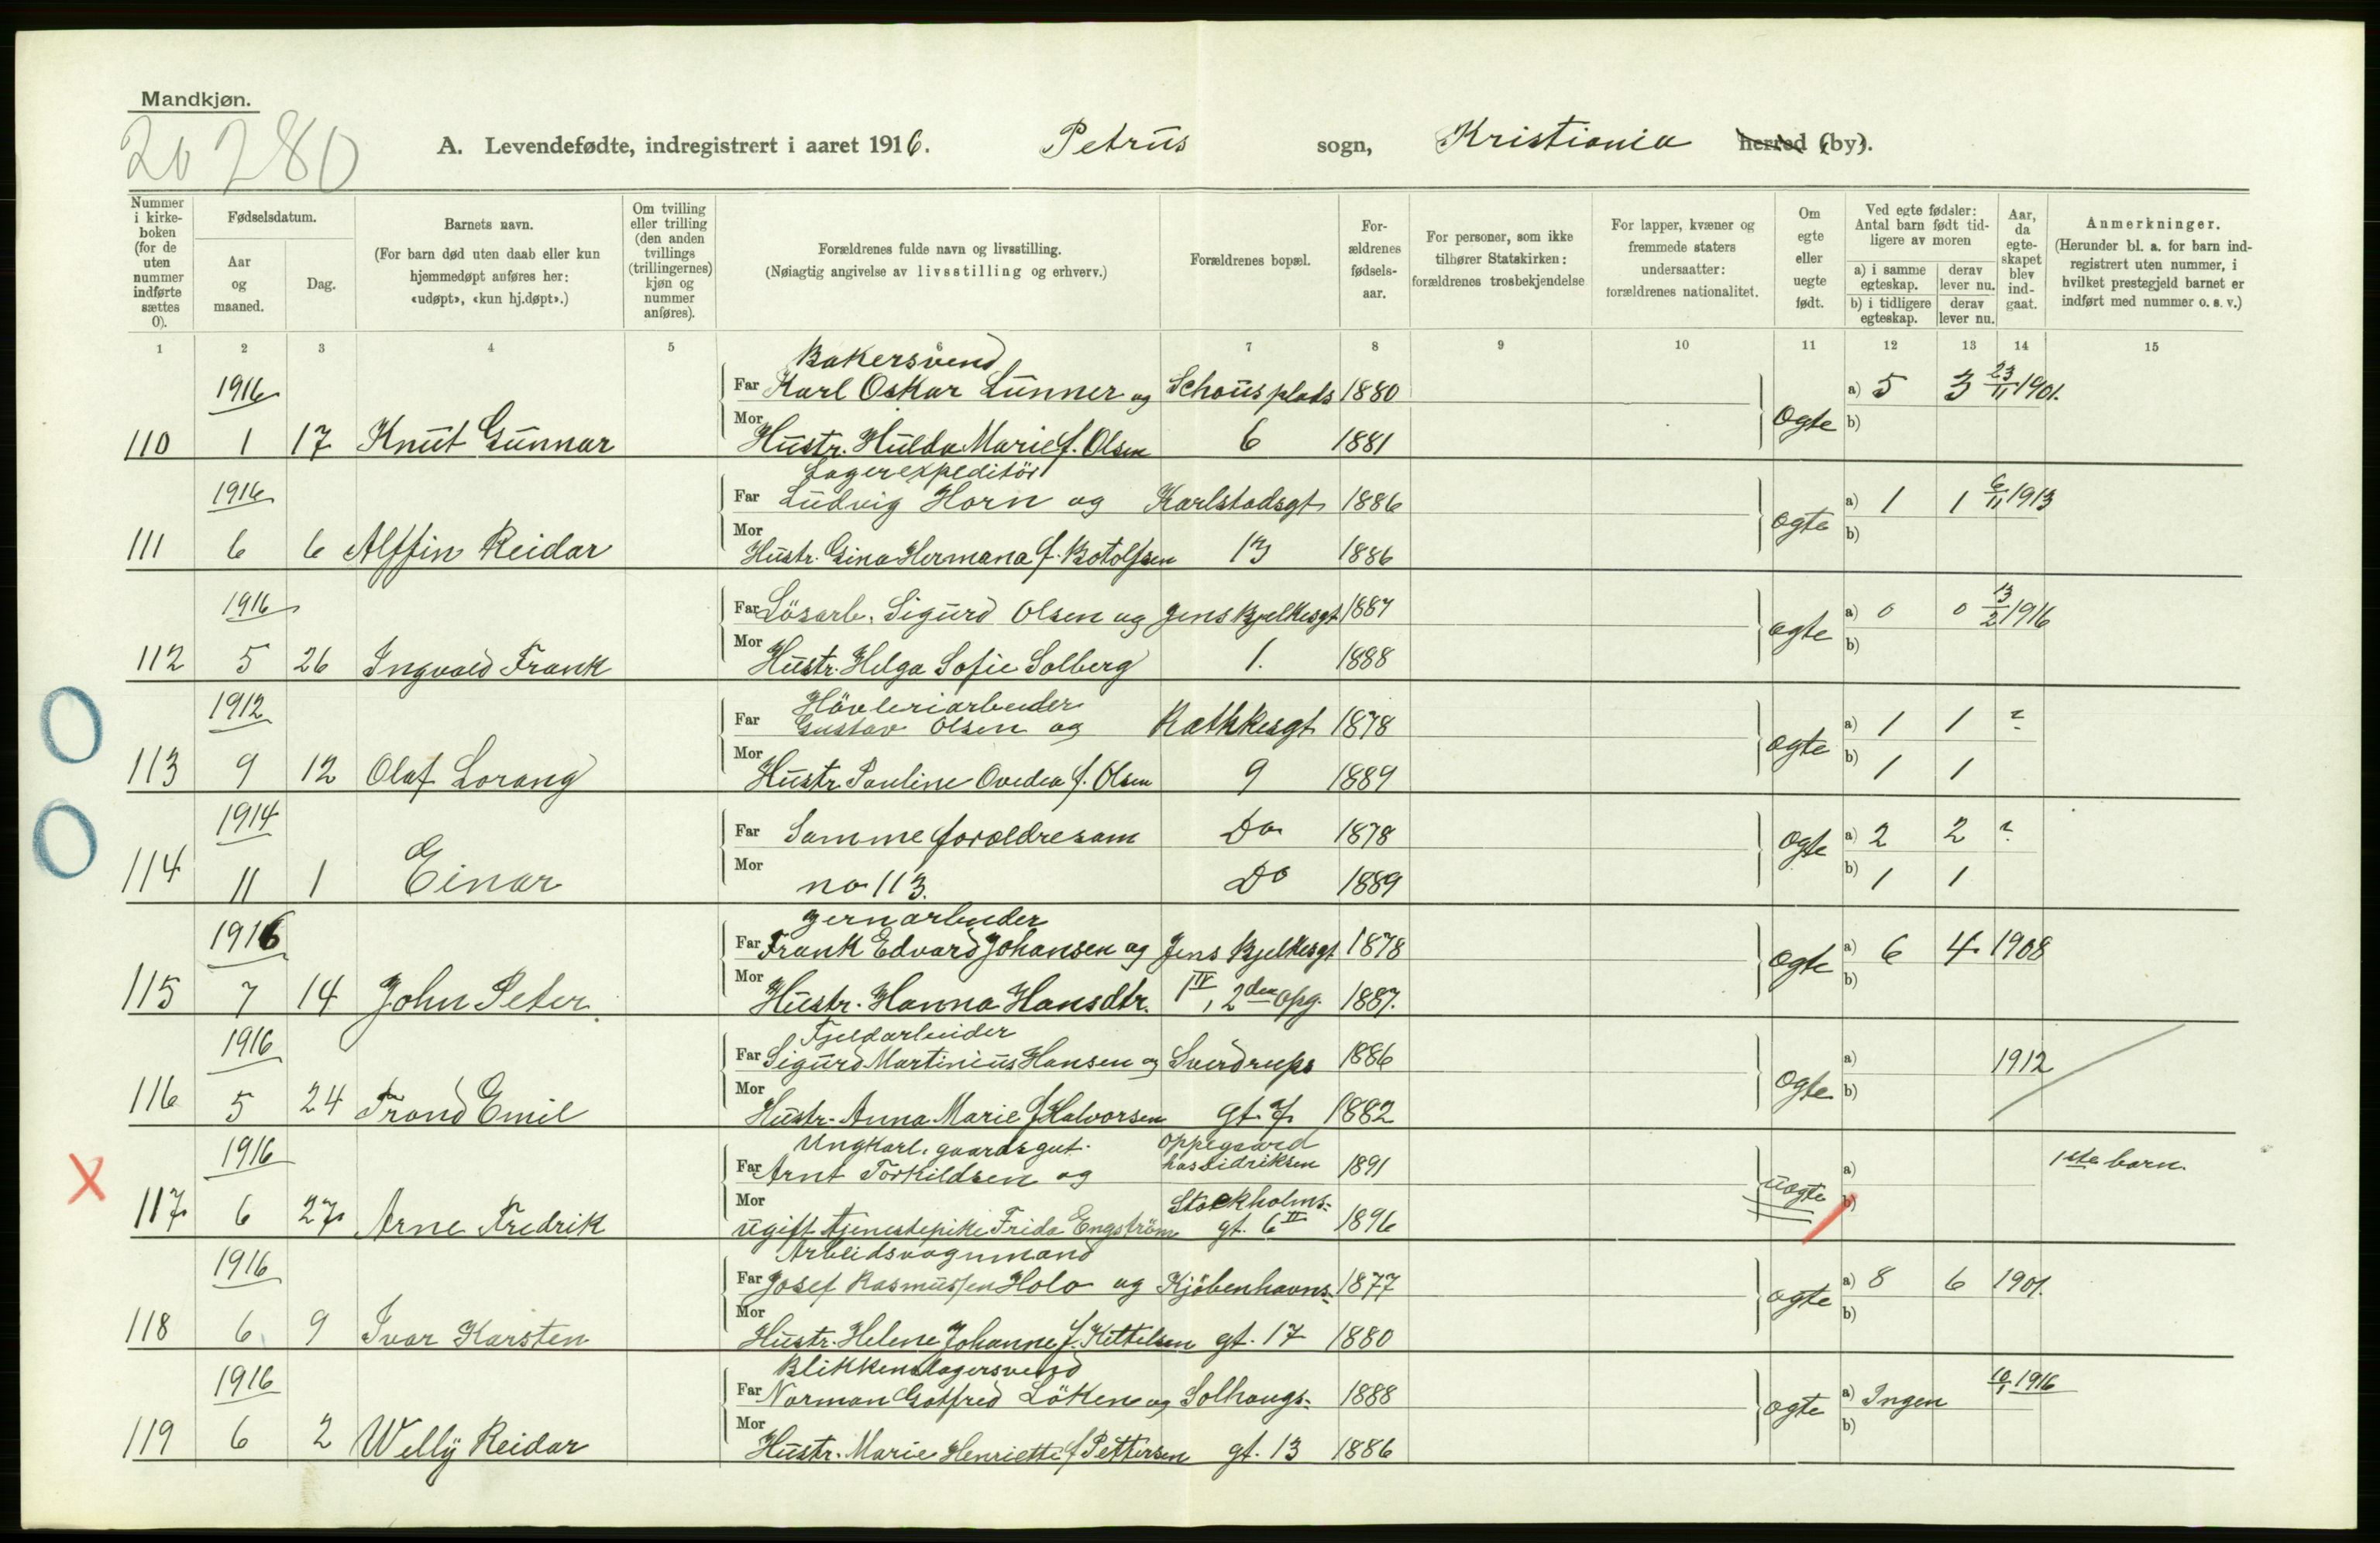 Mandkjøn.
20 280
A. Levendefødte, indregistrert i aaret 1916. Petrus sogn, Kristiania herred (by).
Nummer i kirkeboken (for de uten nummer indførte sættes 0).
Fødselsdatum.
Aar og maaned.
Dag.
Barnets navn.
(For barn død uten daab eller kun hjemmedøpt anføres her: «udøpt», «kun hj.døpt».)
Om tvilling eller trilling (den anden tvillings (trillingernes) kjøn og nummer anføres).
Forældrenes fulde navn og livsstilling.
(Nøiagtig angivelse av livsstilling og erhverv.)
Forældrenes bopæl.
Forældrenes fødselsaar.
For personer, som ikke tilhører Statskirken: forældrenes trosbekjendelse
For lapper, kvæner og fremmede staters undersaatter: forældrenes nationalitet.
Om egte eller uegte født.
Ved egte fødsler: Antal barn født tidligere av moren
a) i samme egteskap. derav lever nu.
b) i tidligere egteskap. derav lever nu.
Aar, da egteskapet blev indgaat.
Anmerkninger.
(Herunder bl. a. for barn indregistrert uten nummer, i hvilket prestegjeld barnet er indført med nummer o. s. v.)
1 2 3 4 5 6 7 8 9 10 11 12 13 14 15
Bakersvend
1916 Far Karl Oskar Lunner og Schous plads 1880 a) 5 3 23/11 1901.
110 1 17 Knut Gunnar Mor Hustr. Hulda Marie f. Olsen 6 1881 Ogte b)
Lagerexpeditör
1916 Far Ludvig Horn og Karlstadsgt 1886 a) 1 1 6/11 1913
111 6 6 Alffin Reidar Mor Hustr. Gina Hermana f. Botolfsen 13 1886 ogte b)
1916 Far Lösarb. Sigurd Olsen og Jens Bjelkesgt 1887 a) 0 0 13/2 1916
112 5 26 Ingvald Frank Mor Hustr. Helga Sofie Solberg 1. 1888 ogte b)
Hövleriarbeider
1912 Far Gustav Olsen og Rathkesgt 1878 a) 1 1 ?
113 9 12 Olaf Lorang Mor Hustr. Pauline Ovedea f. Olsen 9 1889 ogte b) 1 1
1914 Far Samme foroldre som Do 1878 a) 2 2 ?
114 11 1 Einar Mor no 113. Do 1889 Ogte b) 1 1
Jernarbeider
1916 Far Frank Edvard Johansen og Jens Bjelkesgt 1878 a) 6 4 1908
115 7 14 John Peter Mor Hustr. Hanna Hansdtr. 1 IV, 2den opg. 1887. Ogte b)
Fjeldarbeider
1916 Far Sigurd Martinius Hansen og Sverdrups 1886 a) 1912
116 5 24 Trond Emil Mor Hustr. Anna Marie f Halvorsen gt. 7 1882 Ogte b)
Ungkarl. gaardsgut. Oppegaard
1916 Far Arnt Torkildsen og hos Didriksen 1891 a) 1ste barn.
117 6 27 Arne Fredrik Mor Ugift tjenestepike Frida Engström Stockholmsgt. 6 II 1896 uogte b)
Arbeidsvognmand
1916 Far Josef Rasmussen Holo og Kjöbenhavns- 1877 a) 8 6 1901.
118 6 9 Ivar Karsten Mor Hustr. Helene Johanne f. Kittelsen gt. 17 1880 ogte b)
Blikkenslagersvend
1916 Far Norman Gotfred Löken og Solhaugs- 1888 a) Ingen 1916
119 6 2 Welly Reidar Mor Hustr. Marie Henriette f Pettersen gt. 13 1886 ogte b)